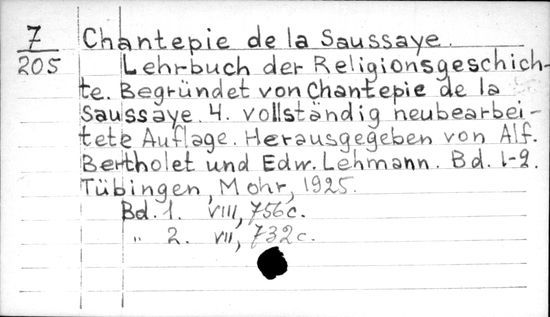 7 Chantepie de la Saussaye.
205 Lehrbuch der Religionsgeschich-
te. Begründet von Chantepie de la
Saussaye. 4. vollständig neubearbei-
tete Auflage. Herausgegeben von Alf.
Bertholet und Edw. Lehmann. Bd. 1-2.
Tübingen, Mohr, 1925.
Bd. 1. VIII, 756 c.
" 2. VII, 732 c.